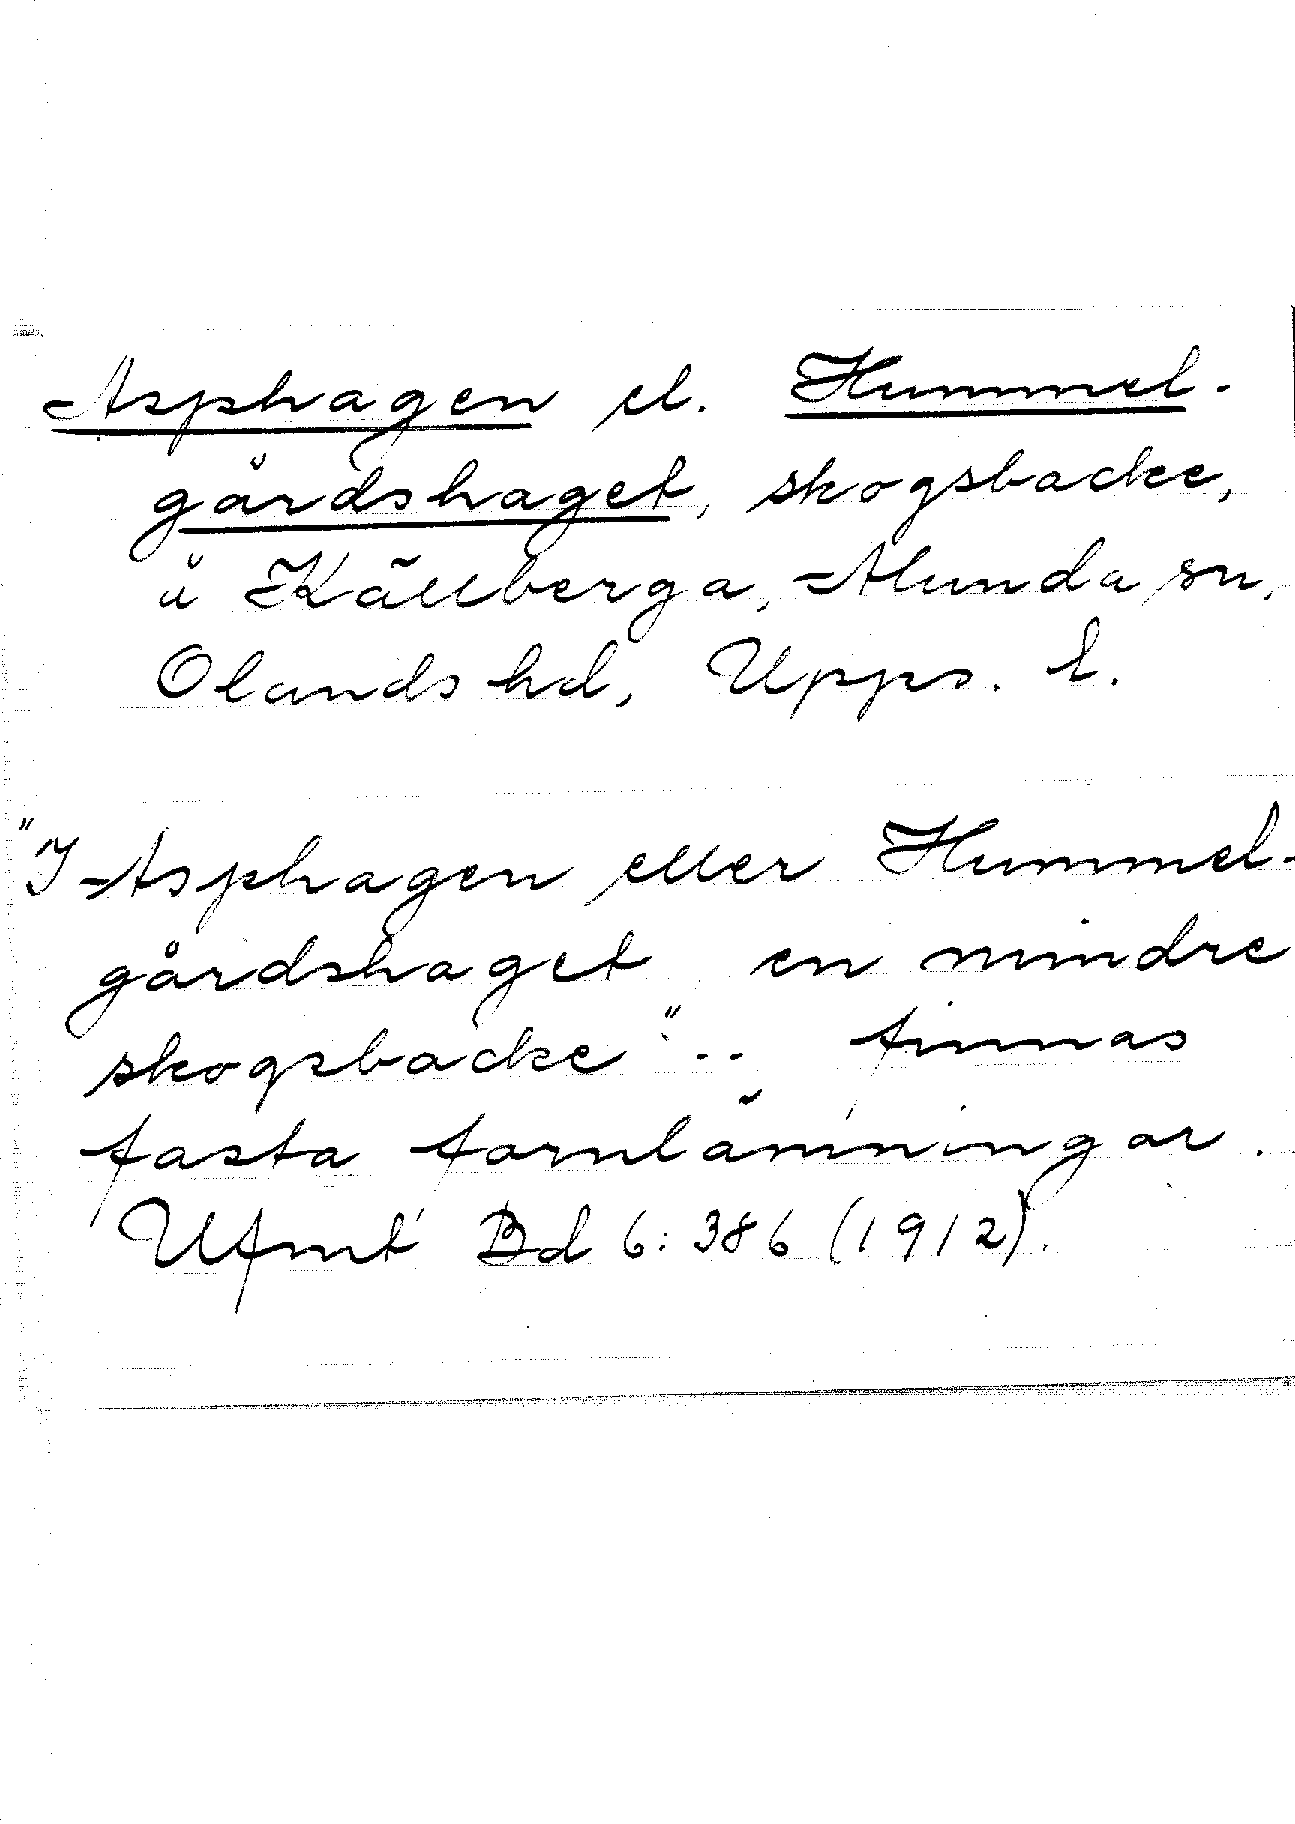 Asphagen el. Hummel-
gårdshaget, skogsbacke,
å Källberga, Alunda sn,
Olands hd, Upps. l.
"I Asphagen eller Hummel-
gårdshaget, en mindre
skogsbacke" .. finnas
fasta fornlämningar.
Ufmt Bd 6: 386 (1912).